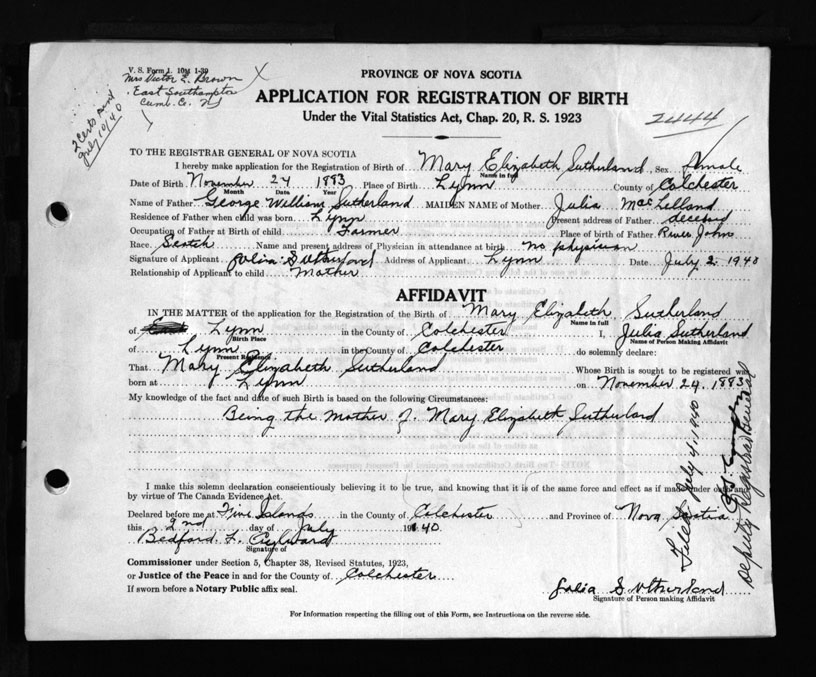 V. S. Form 1. 10M 1-39
Mrs Victor L. Brown
East Southampton
Cumb. Co. NS
2 Certs sent
July 10/40
PROVINCE OF NOVA SCOTIA
APPLICATION FOR REGISTRATION OF BIRTH
Under the Vital Statistics Act, Chap. 20, R. S. 1923
2444
TO THE REGISTRAR GENERAL OF NOVA SCOTIA
I hereby make application for the Registration of Birth of Mary Elizabeth Sutherland Sex female
Name in full
Date of Birth November 24 1883 Place of Birth Lynn County of Colchester
Month Date Year
Name of Father George William Sutherland MAIDEN NAME of Mother Julia MacLelland
Residence of Father when child was born Lynn Present address of Father deceased
Occupation of Father at Birth of child Farmer Place of birth of Father River John
Race Scotch Name and present address of Physician in attendance at birth no physician
Signature of Applicant Julia Sutherland Address of Applicant Lynn Date July 2 1940
Relationship of Applicant to child Mother
AFFIDAVIT
IN THE MATTER of the application for the Registration of the Birth of Mary Elizabeth Sutherland
Name in full
of Lynn in the County of Colchester I, Julia Sutherland
Birth Place Name of Person Making Affidavit
of Lynn in the County of Colchester do solemnly declare:
Present Residence
That Mary Elizabeth Sutherland Whose Birth is sought to be registered was
born at Lynn on November 24, 1883
My knowledge of the fact and date of such Birth is based on the following Circumstances:
Being the Mother of Mary Elizabeth Sutherland
I make this solemn declaration conscientiously believing it to be true, and knowing that it is of the same force and effect as if made under oath and
by virtue of The Canada Evidence Act.
Declared before me at Five Islands in the County of Colchester and Province of Nova Scotia
this 2nd day of July 1940
Bedford L.
Signature of
Commissioner under Section 5, Chapter 38, Revised Statutes, 1923,
or Justice of the Peace in and for the County of Colchester
If sworn before a Notary Public affix seal.
Julia Sutherland
Signature of Person making Affidavit
For Information respecting the filling out of this Form, see Instructions on the reverse side.
Filed July 4, 1940
Deputy Registrar General